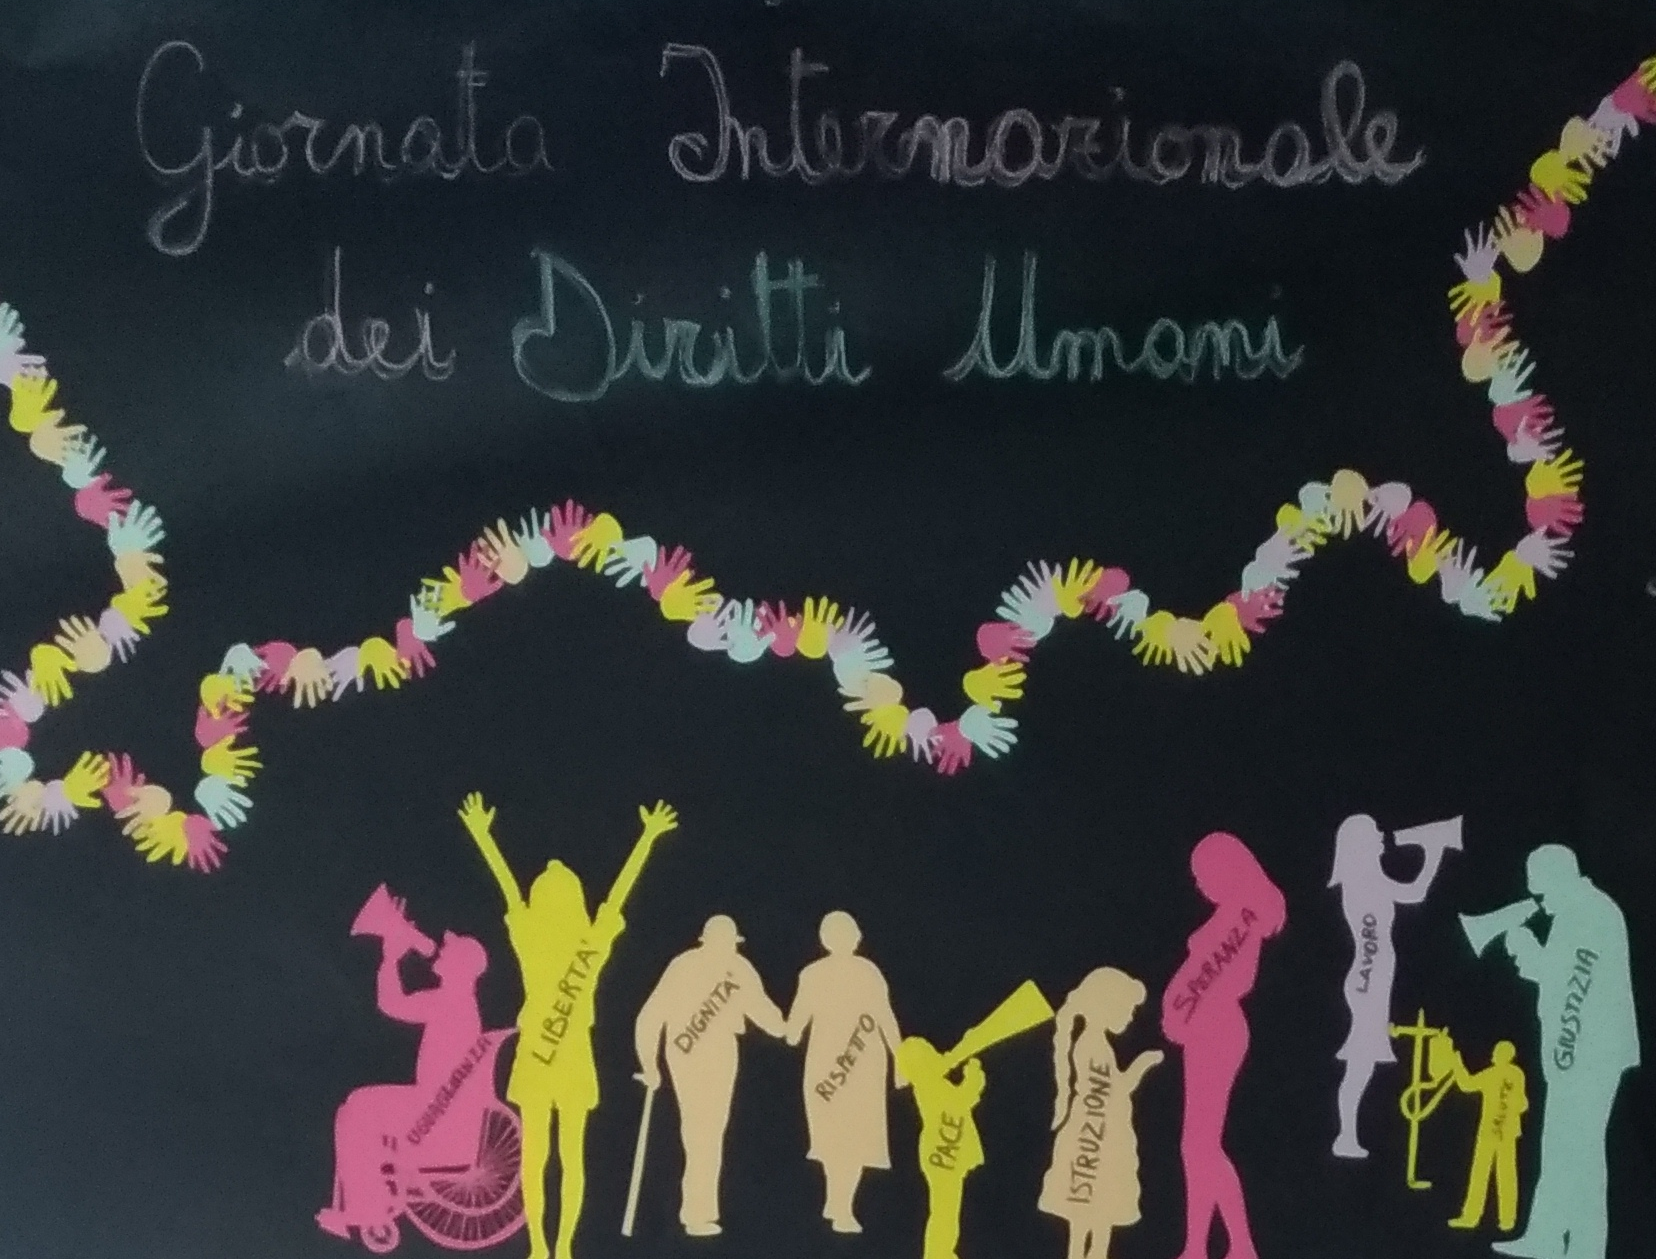 Giornata Internazionale
dei Diritti Umani
UGUAGLIANZA
LIBERTA'
DIGNITA'
RISPETTO
PACE
ISTRUZIONE
SPERANZA
LAVORO
SALUTE
GIUSTIZIA